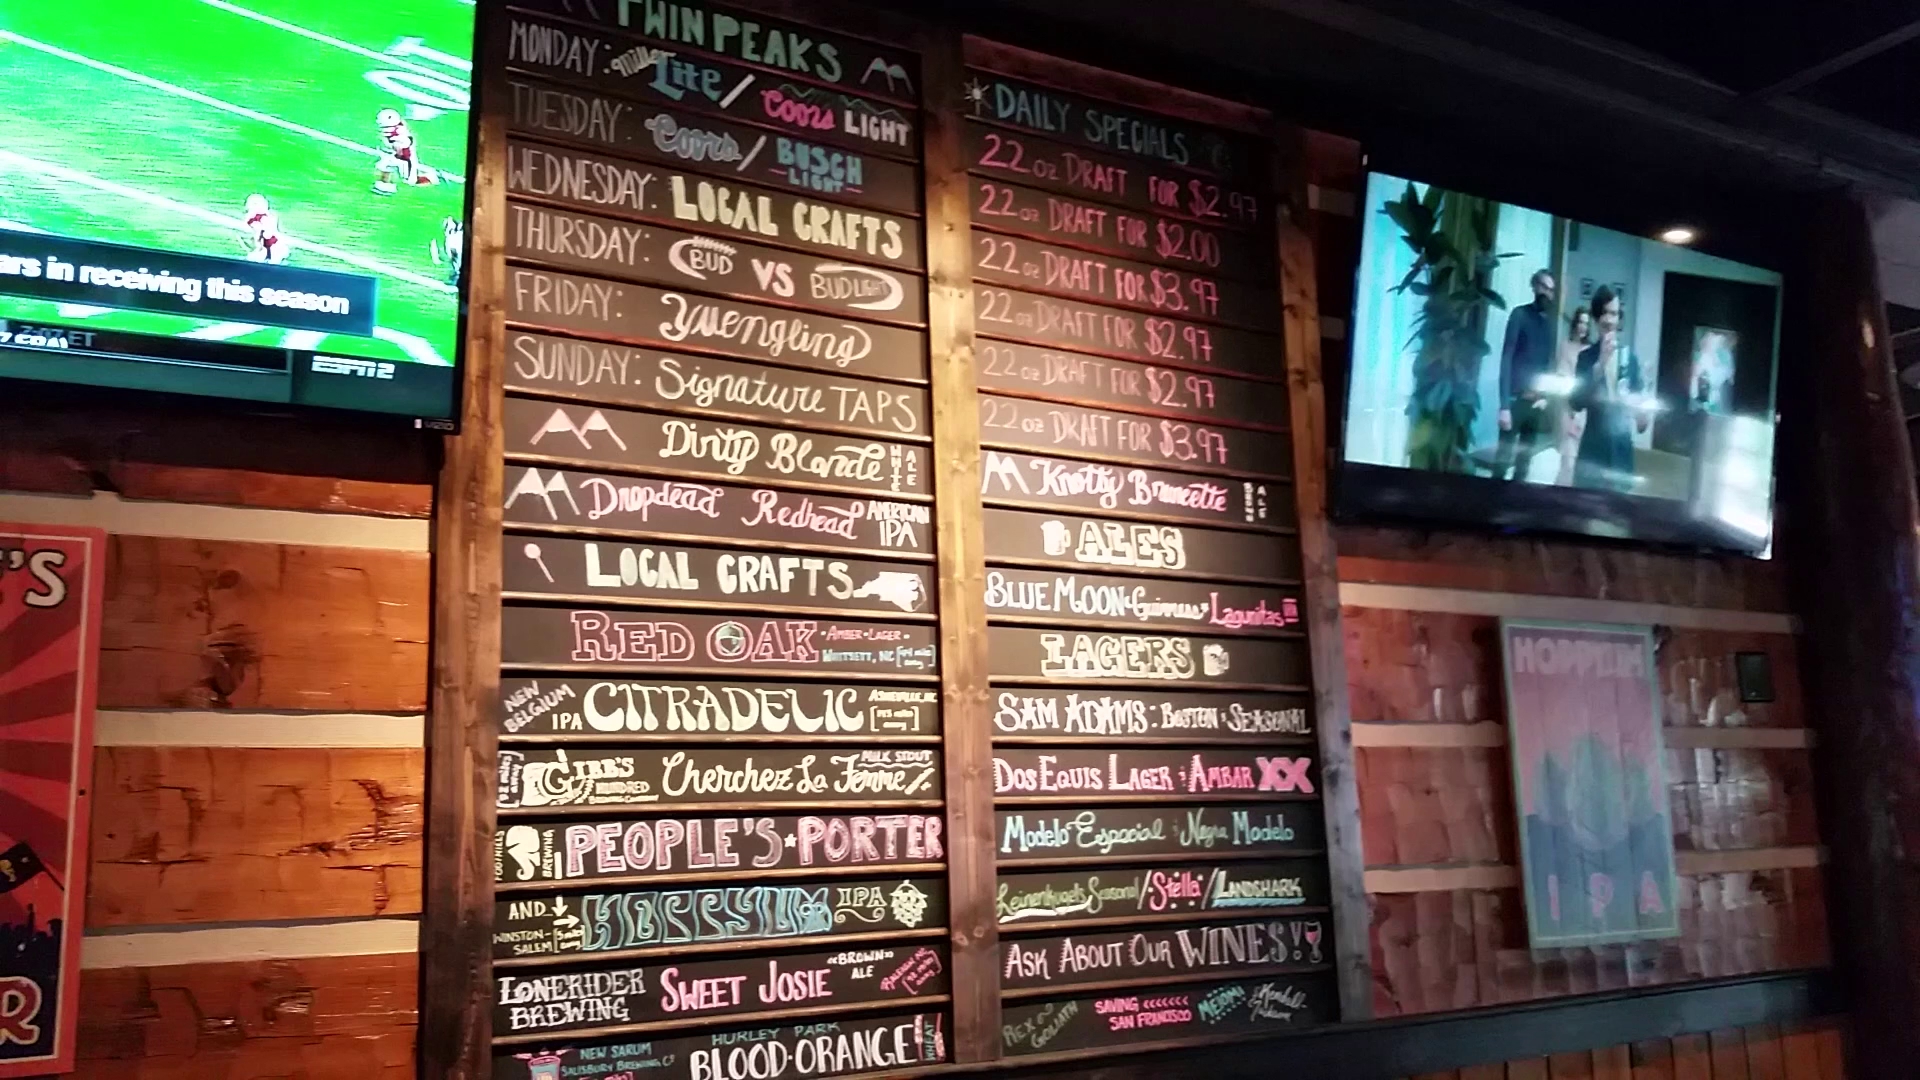 TWIN PEAKS
MONDAY: Miller Lite / Coors LIGHT
TUESDAY: Coors / BUSCH LIGHT
WEDNESDAY: LOCAL CRAFTS
THURSDAY: BUD VS BUD LIGHT
FRIDAY: Yuengling
SUNDAY: Signature TAPS
Dirty Blonde WHITE ALE
Dropdead Redhead AMERICAN IPA
LOCAL CRAFTS
RED OAK AMBER LAGER
WHITSETT, NC
NEW BELGIUM IPA CITRADELIC ASHEVILLE, NC
GIBB'S HUNDRED BREWING COMPANY Cherchez La Femme MILK STOUT
FOOTHILLS BREWING PEOPLE'S PORTER
AND WINSTON-SALEM HOPPYUM IPA
LONERIDER BREWING SWEET JOSIE "BROWN" ALE RALEIGH, NC
NEW SARUM SALISBURY BREWING CO HURLEY PARK BLOOD-ORANGE WHEAT
DAILY SPECIALS
22 oz DRAFT FOR $2.97
22 oz DRAFT FOR $2.00
22 oz DRAFT FOR $3.97
22 oz DRAFT FOR $2.97
22 oz DRAFT FOR $2.97
22 oz DRAFT FOR $3.97
Knotty Brunette BROWN ALE
ALES
BLUE MOON Guinness Lagunitas
LAGERS
SAM ADAMS: BOSTON SEASONAL
DOS EQUIS LAGER AMBAR XX
Modelo Especial Negra Modelo
Leinenkugels Seasonal / Stella / LANDSHARK
ASK ABOUT OUR WINES!
REX GOLIATH SAVING SAN FRANCISCO MEIOMI Kendall Jackson
ars in receiving this season
7:07 ET
ESPN2
VIZIO
'S
R
HOPPYUM
IPA